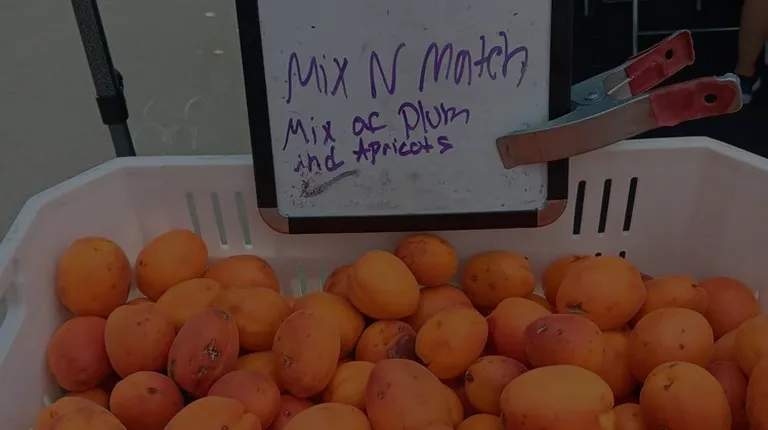 Mix N Match
Mix of Plum
and Apricots